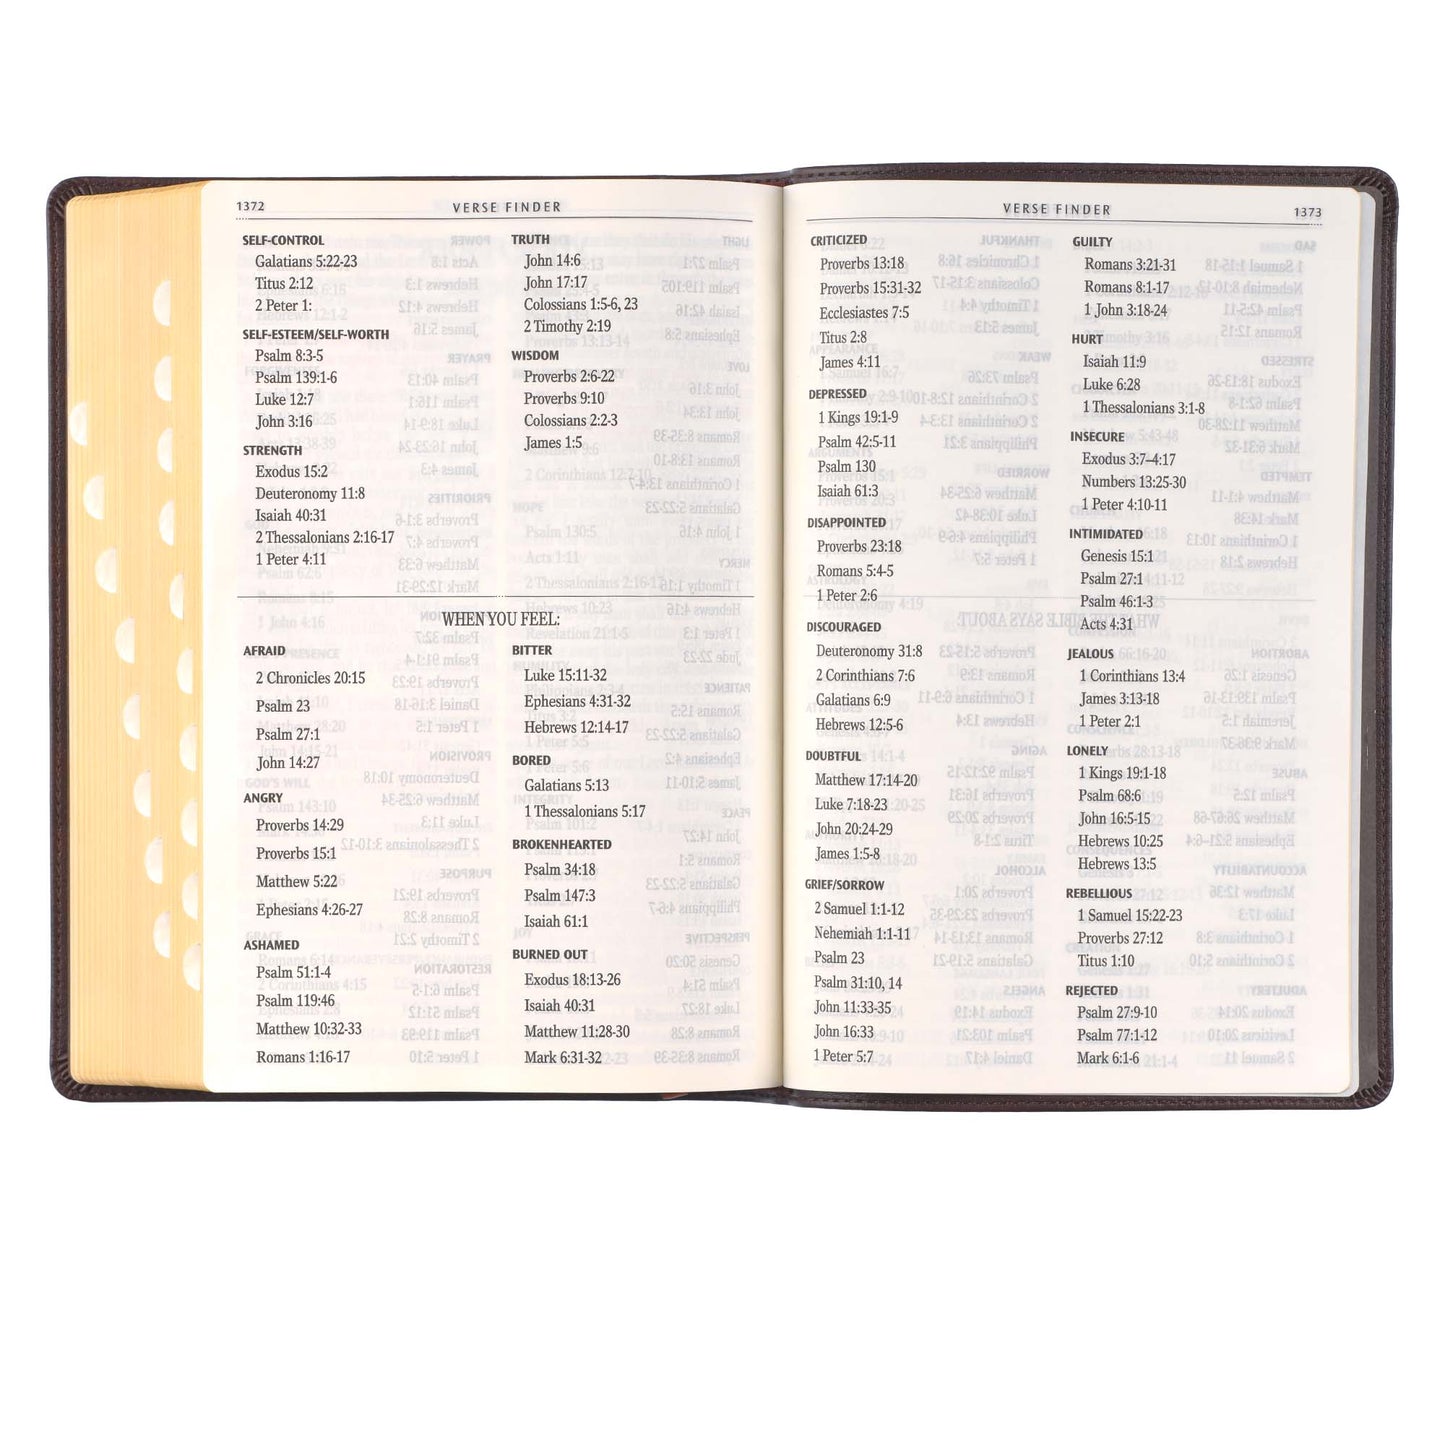 1372
VERSE FINDER
SELF-CONTROL
Galatians 5:22-23
Titus 2:12
2 Peter 1:
SELF-ESTEEM/SELF-WORTH
Psalm 8:3-5
Psalm 139:1-6
Luke 12:7
John 3:16
STRENGTH
Exodus 15:2
Deuteronomy 11:8
Isaiah 40:31
2 Thessalonians 2:16-17
1 Peter 4:11
TRUTH
John 14:6
John 17:17
Colossians 1:5-6, 23
2 Timothy 2:19
WISDOM
Proverbs 2:6-22
Proverbs 9:10
Colossians 2:2-3
James 1:5
WHEN YOU FEEL:
AFRAID
2 Chronicles 20:15
Psalm 23
Psalm 27:1
John 14:27
ANGRY
Proverbs 14:29
Proverbs 15:1
Matthew 5:22
Ephesians 4:26-27
ASHAMED
Psalm 51:1-4
Psalm 119:46
Matthew 10:32-33
Romans 1:16-17
BITTER
Luke 15:11-32
Ephesians 4:31-32
Hebrews 12:14-17
BORED
Galatians 5:13
1 Thessalonians 5:17
BROKENHEARTED
Psalm 34:18
Psalm 147:3
Isaiah 61:1
BURNED OUT
Exodus 18:13-26
Isaiah 40:31
Matthew 11:28-30
Mark 6:31-32
VERSE FINDER
1373
CRITICIZED
Proverbs 13:18
Proverbs 15:31-32
Ecclesiastes 7:5
Titus 2:8
James 4:11
DEPRESSED
1 Kings 19:1-9
Psalm 42:5-11
Psalm 130
Isaiah 61:3
DISAPPOINTED
Proverbs 23:18
Romans 5:4-5
1 Peter 2:6
DISCOURAGED
Deuteronomy 31:8
2 Corinthians 7:6
Galatians 6:9
Hebrews 12:5-6
DOUBTFUL
Matthew 17:14-20
Luke 7:18-23
John 20:24-29
James 1:5-8
GRIEF/SORROW
2 Samuel 1:1-12
Nehemiah 1:1-11
Psalm 23
Psalm 31:10, 14
John 11:33-35
John 16:33
1 Peter 5:7
GUILTY
Romans 3:21-31
Romans 8:1-17
1 John 3:18-24
HURT
Isaiah 11:9
Luke 6:28
1 Thessalonians 3:1-8
INSECURE
Exodus 3:7–4:17
Numbers 13:25-30
1 Peter 4:10-11
INTIMIDATED
Genesis 15:1
Psalm 27:1
Psalm 46:1-3
Acts 4:31
JEALOUS
1 Corinthians 13:4
James 3:13-18
1 Peter 2:1
LONELY
1 Kings 19:1-18
Psalm 68:6
John 16:5-15
Hebrews 10:25
Hebrews 13:5
REBELLIOUS
1 Samuel 15:22-23
Proverbs 27:12
Titus 1:10
REJECTED
Psalm 27:9-10
Psalm 77:1-12
Mark 6:1-6